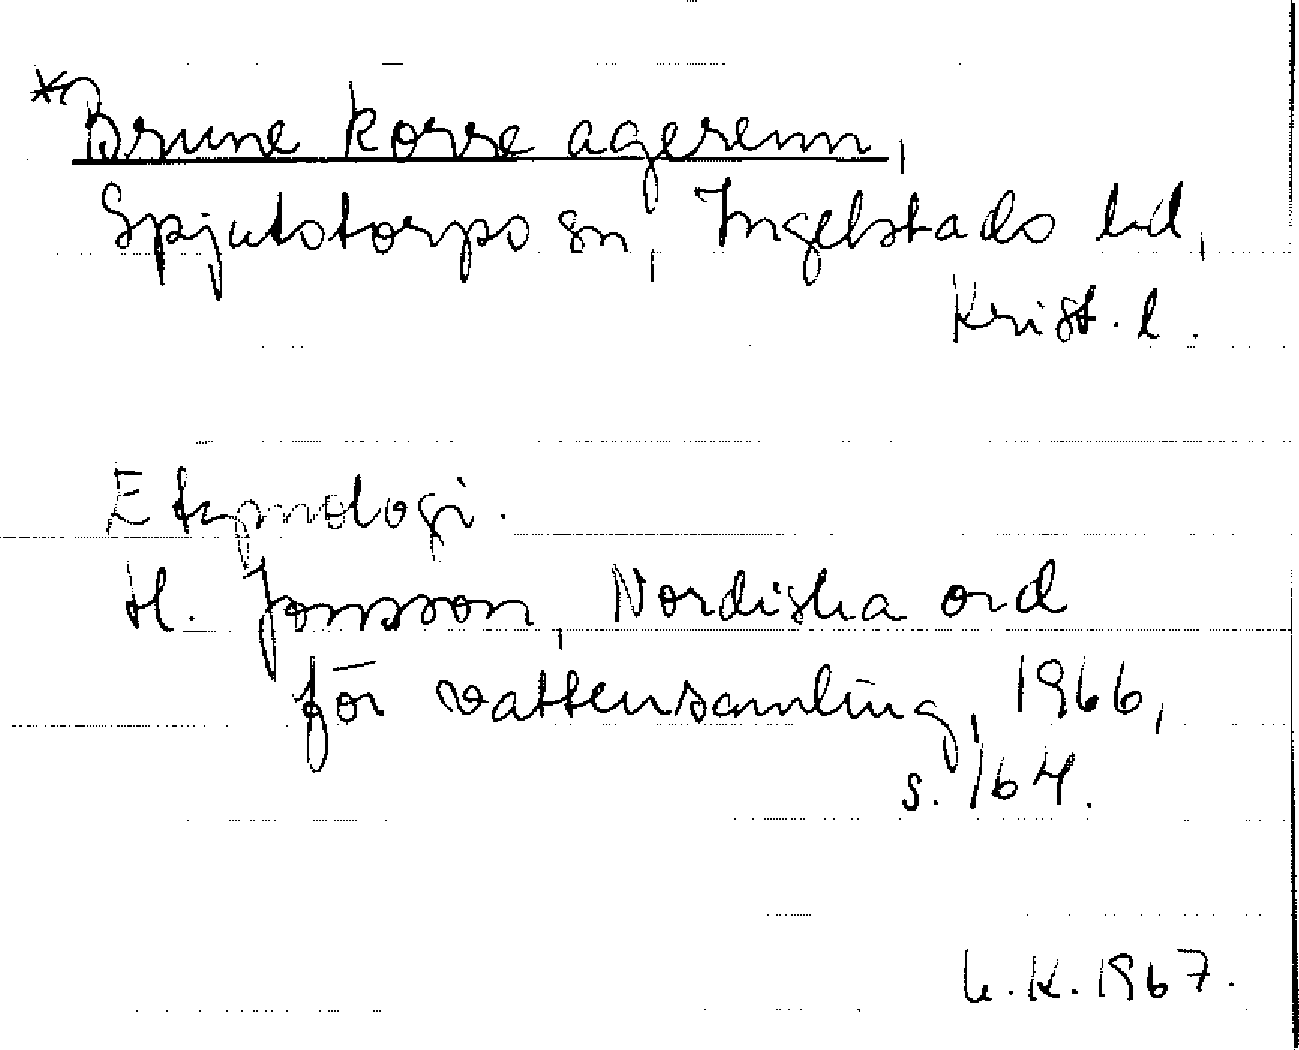 *Brune korse agerenn,
Spjutstorps sn, Ingelstads hd,
Krist. l.
Etymologi.
H. Jonsson, Nordiska ord
för vattensamling, 1966,
s. 164.
h.K. 1967.